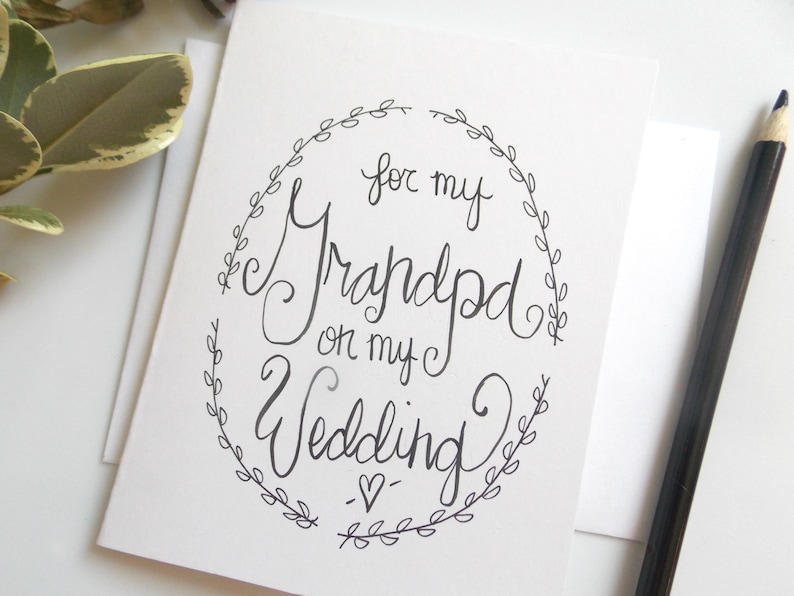 for my
Grandpa
on my
Wedding